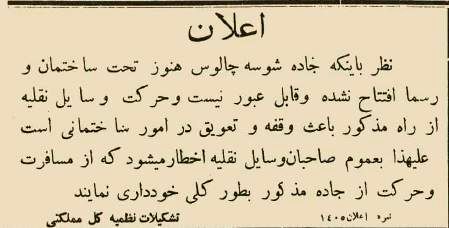 اعلان
نظر باینکه جاده شوسه چالوس هنوز تحت ساختمان و
رسما افتتاح نشده وقابل عبور نیست وحرکت وسایل نقلیه
از راه مذکور باعث وقفه و تعویق در امور ساختمانی است
علیهذا بعموم صاحبان وسایل نقلیه اخطار میشود که از مسافرت
وحرکت از جاده مذکور بطور کلی خودداری نمایند
نمره اعلان ۱۴۰۵ تشکیلات نظمیه کل مملکتی